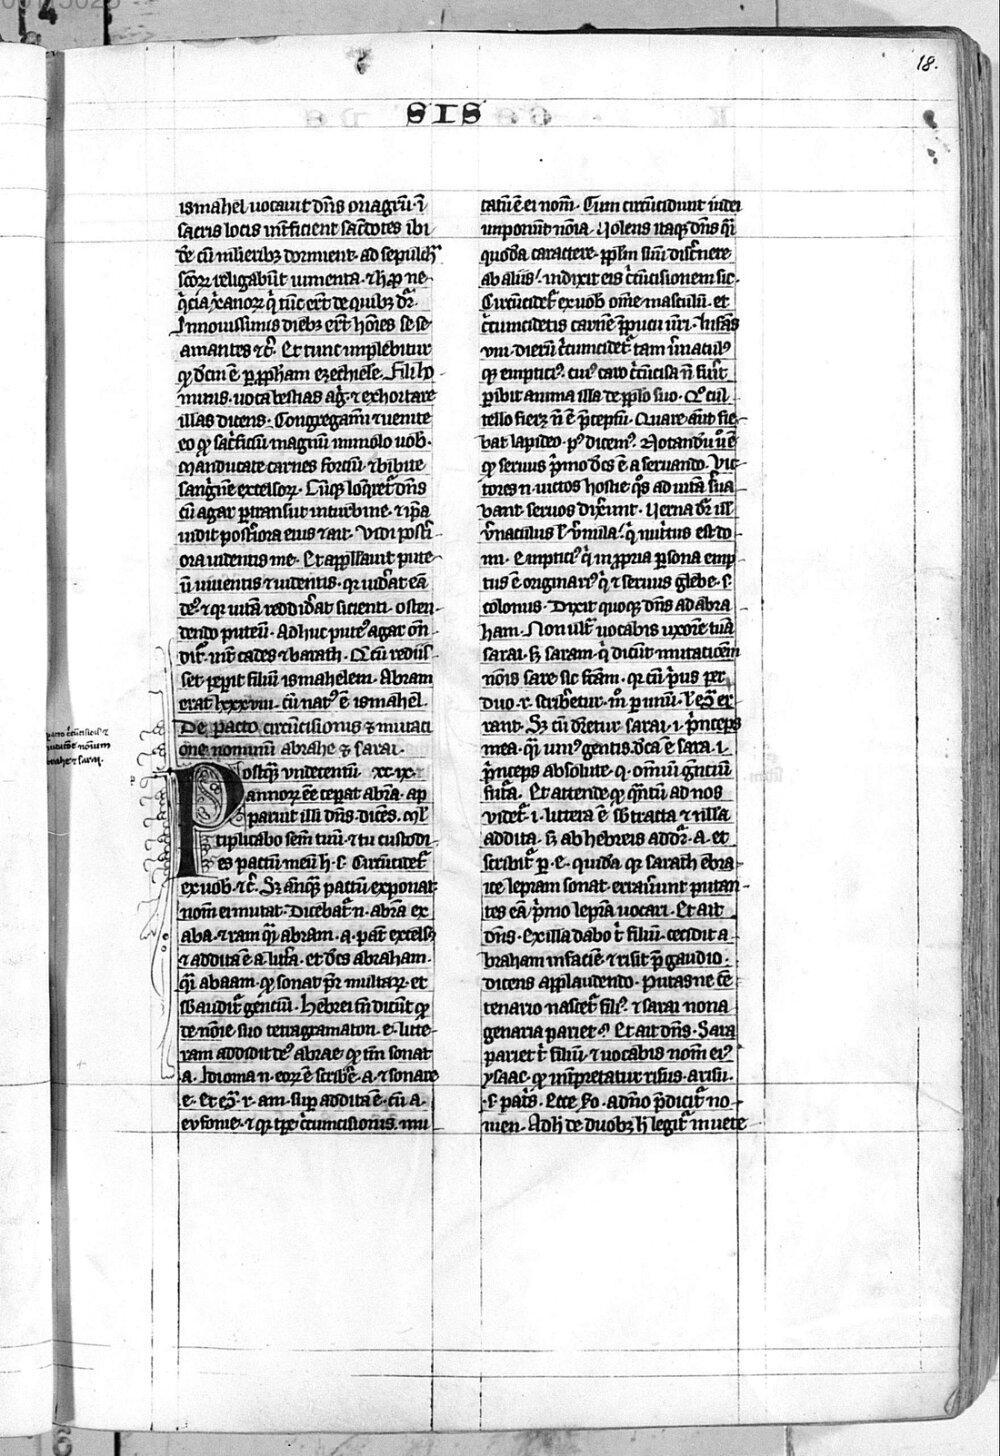 18.
SIS
ismahel uocauit dn̄s onagrū· ī
sacris locis int̄ficient sac̄dotes ibi
de cū mlierib; dormient· ad sepulch͛
sc̄oꝝ religabūt iumenta· ⁊ h̄ ꝓ ne
Innouissimis dieb; erūt hōies se se
amantes ⁊c̄· Et tunc implebitur
qͩ dc̄m ē ꝑ ꝓph̄am ezechiele· Fili ho
minis uoca bestias agͥ· ⁊ exhortare
illas dicens· Congregamī ⁊ uenite
eo qͩ sac̄ficiū magnū immolo uob̄·
Manducate carnes fortiū ⁊ bibite
sanguīe excelsoꝝ· Cūq; loqͤret̄ dn̄s
cū agar ꝑtransiit in turbine· ⁊ ip̄a
uidit post̄iora eius ⁊ ait· Vidi post̄i
ora uidentis me· Et app̄llauit pute
ū uiuentis ⁊ uidentis· qr uid̄at eā
de᷒ ⁊ qr uitā reddid̄at sicienti· osten
dendo puteū· Adhuc pute᷒ agar on̄
dit̄· int̄ cades ⁊ barath· Q̄ cū rediis
set peperit filiū ismahelem· Abram
erat lxxxvi· cū nat᷒ ē ismahel·
De pacto circūcisionis ⁊ mutati
one nominū abrahe ⁊ sarai·
Postqͣ; undecimū xc·ix·
annoꝝ ee ceperat abrā· ap
paruit illi dn̄s dicēs· ml̄
tiplicabo sem̄ tuū· ⁊ tu custodi
es pactū meū h̄· s· Circūcidet̄
ex uob̄ ⁊c̄· Sꝫ anͨqͣ; pactū exponat
nom̄ ei mutat· Dicebat͛ n· abrā ex
aba· ⁊ ram qͣi abram· a· pat̄ excels᷒
⁊ addita ē a· lit̄a· et dc̄s abraham·
qͣi abaam· qͩ sonat pr̄ multaꝝ· et
sbaudit̄ gentiū· Hebrei tn̄ dicūt qͩ
de noīe suo tetragramaton· e· litte
ram addidit de᷒ abrae qͩ tn̄ sonat
a· Idioma n· eoꝝ ē scribe· a· ⁊ sonare
e· Et eͬ· r· am· suꝑ addita ē· cū a·
eufonie· ⁊ qr tp̄e circūcisionis· mu
tatū ē ei nom̄· Cum circūcidunt iudei
imponunt nōia· Volens itaq; dn̄s qͣi
quodā caractere· pp̄lm suū disc̄nere
ab aliis· indixit eis c̄cūcisionem sic·
Circūcidet̄ ex uob̄ om̄e masculū· et
c̄cumcidetis carnē p̄pucii ūri· Infās
viii· dierū c̄cumcidet͛ tam ūnacul᷒
qͣ; emptici᷒· cui᷒ caro c̄cūcisa n̄ fūit
ꝑibit anima illa de pp̄lo suo· Q̄ cul
tello fieri n̄ ē p̄ceptū· Quare aut̄ fie
bat lapideo· p᷒ dicem᷒· Notandū u̅ ē
qͩ seruus p̄mo dc̄s ē a seruando· Vic
tores n· uictos hostie qͦs ad uitā s̄ua
bant seruos dix̄unt· Verna dr̄ ul̄
ūnaculus l̄ ūnula· qͥ nūtus est do
mi· Emptici᷒ qͥ in ꝓpria ꝑsona emp
tus ē originari᷒ qͥ ⁊ seruus glebe· s·
colonus· Dixit quoq; dn̄s ad abra
ham· Non ult͛ uocabis uxorē tuā
sarai· sꝫ saram· qͥ dicūt mutatiōem
nōis sare sic fcām· qr cū p̄us per
duo· r· scriberetur· m̊ ꝑ unū· l̄ eͬ er
rant· Sꝫ cū dr̄etur sarai· i· p̄nceps
mea· qͣi uni᷒ gentis· dc̄a ē sara· i·
p̄nceps absolute· qͣ· omniū gn̄tiū
fut̄a· Et attende qͩ qͣntū ad nos
videt̄· i· littera ē sbtracta ⁊ nulla
addita· sꝫ ab hebreis addit͛· a· et
scribit̄ ꝑ· e· quidā· qr sarath ebra
ice lepram sonat· errauerunt putan
tes eā p̄mo leprā uocari· Et ait
dn̄s· Ex illa dabo t̄ filiū· cecidit a
braham in faciē· ⁊ risit p̄ gaudio·
dicens applaudendo· Putasne cē
tenario nascet͛ fili᷒· ⁊ sarai nona
genaria pariet·᷒ Et ait dn̄s· Sara
pariet t̄ filiū· ⁊ uocabis nom̄ ei᷒
ysaac· qͩ int̄pretatur risus· a risu·
·s· pat̄s· Ecce ho· a dn̄o p̄dicit͛ no
men· Adh̄ de duob; h̄ legit͛ in uete